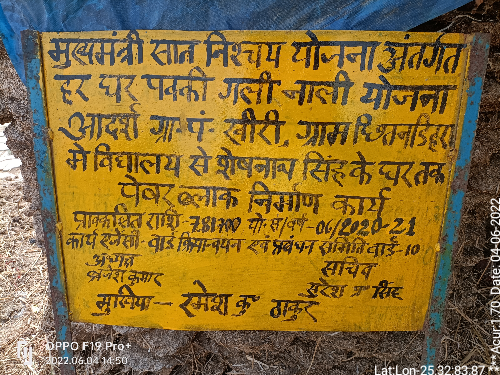 मुख्यमंत्री सात निश्चय योजना अंतर्गत
हर घर पक्की गली नाली योजना
आदर्श ग्रा० पं०- खीरी, ग्राम
मे विद्यालय से शेषनाथ सिंह के घर तक
पेवर ब्लाक निर्माण कार्य
प्राक्कलित राशि- 781700 यो० सं/वर्ष-06/2020-21
कार्य एजेंसी- वार्ड क्रियान्वयन एवं प्रबंधन समिति वार्ड-10
सचिव
कुमार
सुरेश प्र० सिंह
मुखिया- रमेश कु० ठाकुर
OPPO F19 Pro+
2022.06.04 14:50
Date: 04-06-2022
Lat:Lon- 25.32.83.87